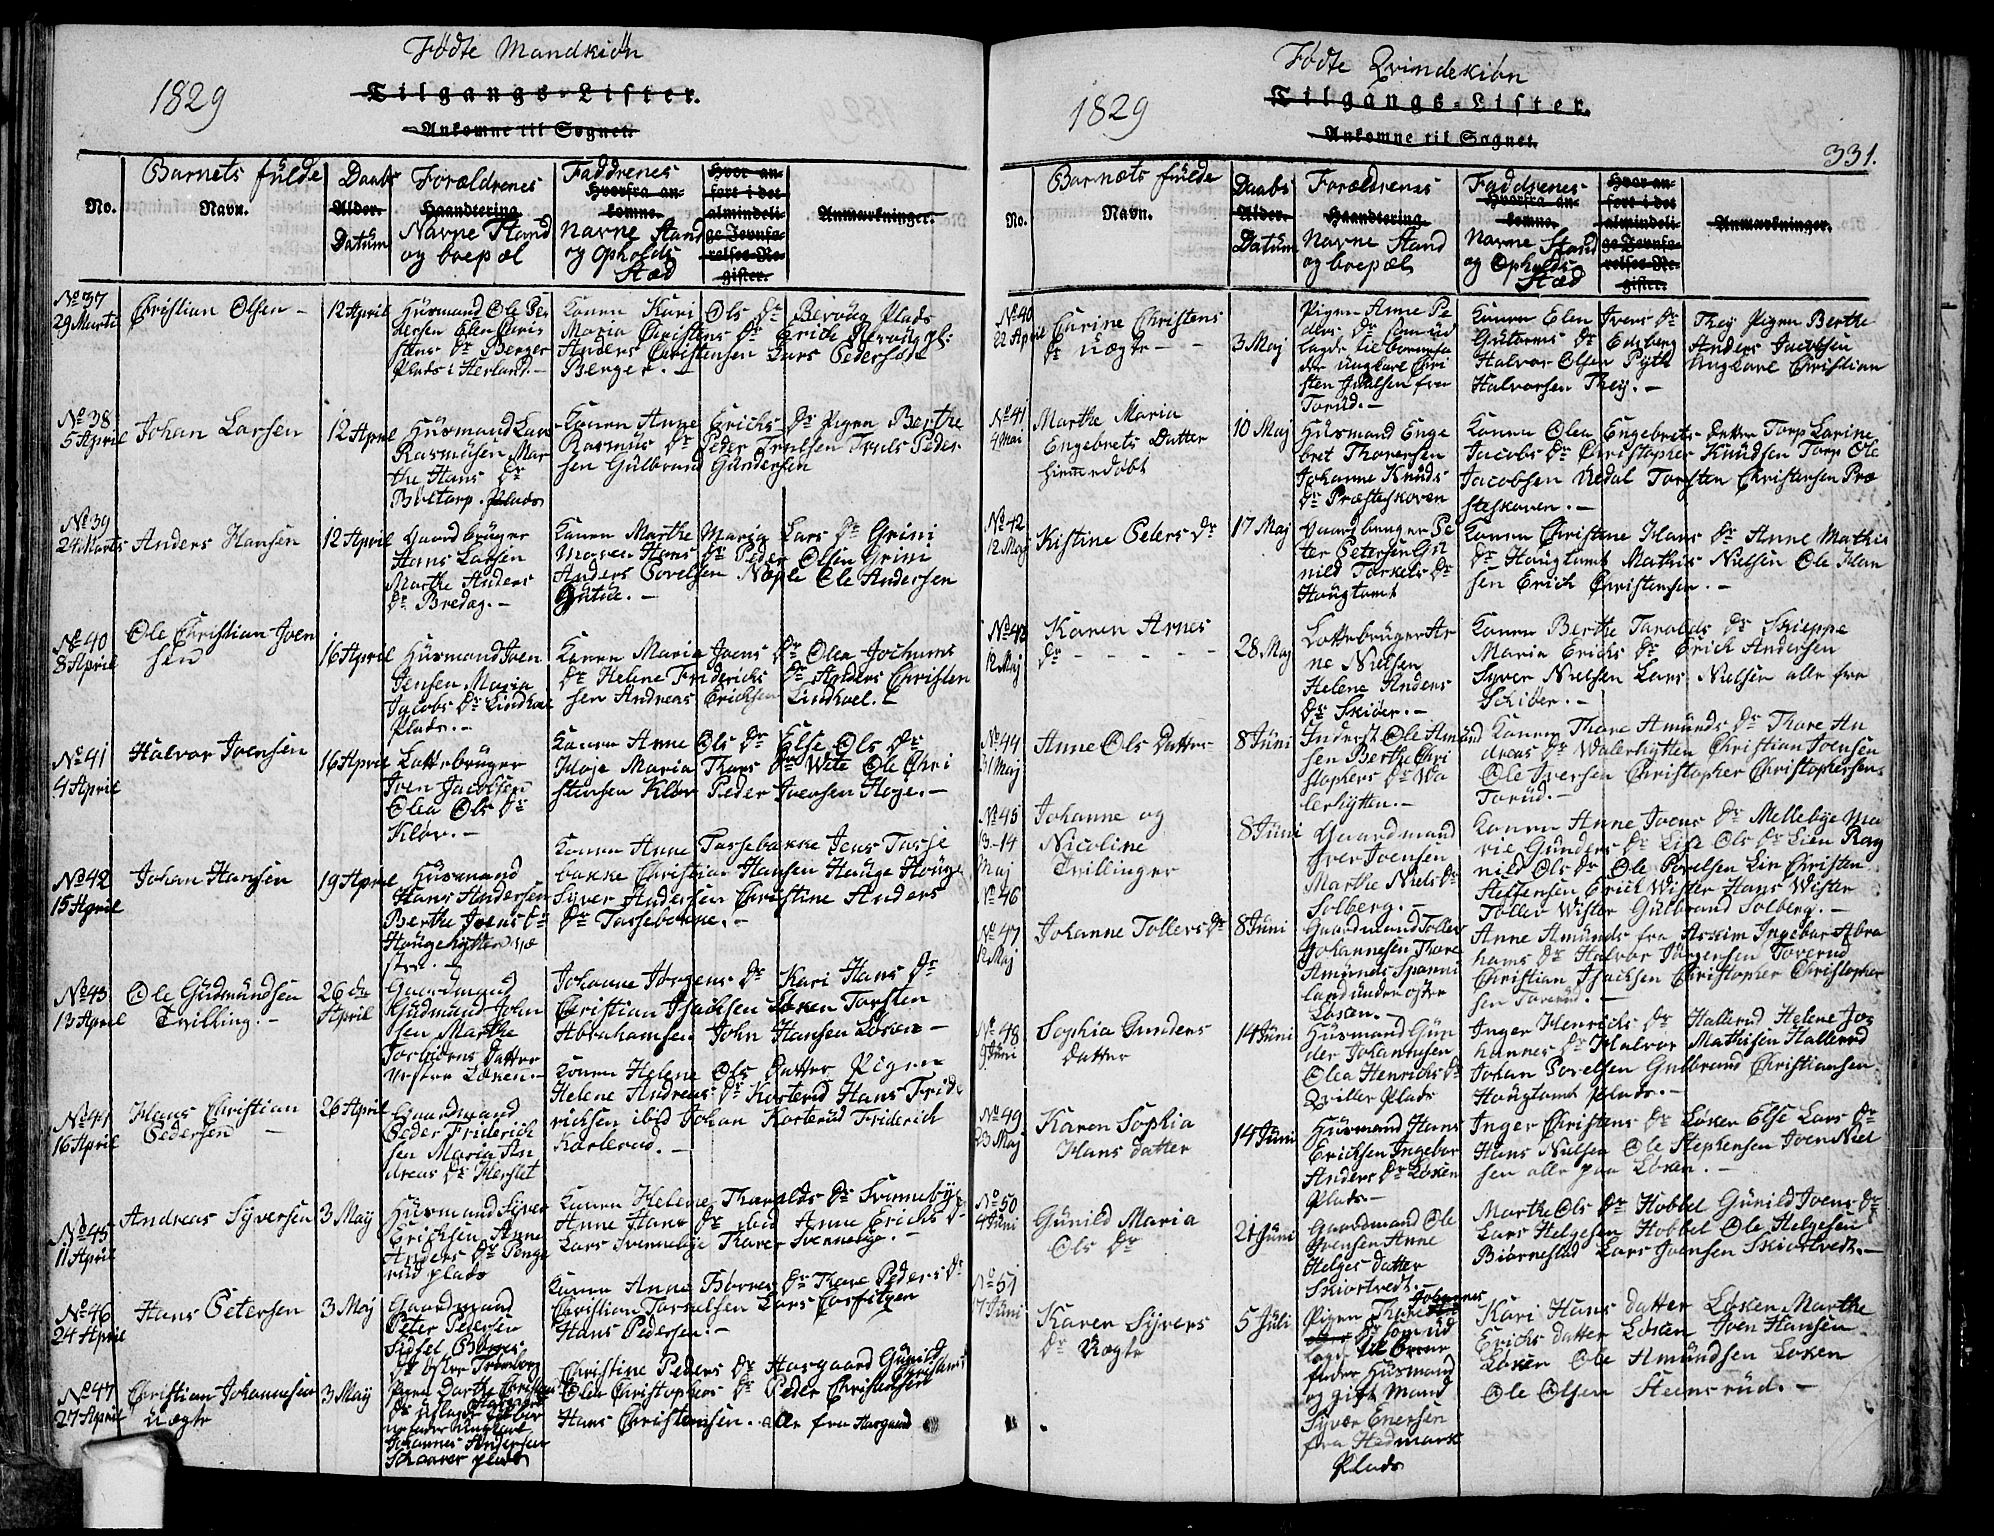 Fødte Mandkiøn
1829
Tilgangs-Lister.
Ankomne til Sognet.
No.
Barnets fulde
Navn.
Daabs
Alder.
Datum
Forældrenes
Haandtering
Navne Stand
og boepæl
Faddrenes
Hvorfra an-
komne.
Navne Stand
og Opholds
Stæd
Hvor an-
ført i det
almindeli-
ge Jevnfø-
relses-Re-
gister.
Anmærkninger.
No 37
29 Marti
Christian Olsen -
12 April
Huusmand Ole Pe
dersen Elen Chris
stens Dr Berger
Plads i Herland. -
Konen Kari Ols Dr Bervåg Plads
Maria Christens Dr Erich Bervåg pl:
Anders Christensen Lars Pedersøn
Berger. -
No 38
5 April
Johan Larsen
12 April
Huusmand Lars
Rasmusen, Mar
the Hans Dr
Böltorp. Plads
Konen Anne Erichs Dr Pigen Berthe
Rasmus Dr Peder Trulsen Truls Peder
sen Gulbrand Gundersen
No 39
24 Marts
Anders Hansen
12 April
Gaardbruger
Hans Larsen
Marthe Anders
Dr Bredag. -
Konen Marthe Maria Lars Dr Grini
Maren Hans Dr Peder Olsen Grini
Anders Povelsen Næple Ole Andersen
Gutue. -
No 40
8 April
Ole Christian Joen
sen
16 April
Huusmand Joen
Jensen Maria
Jacobs Dr Lindhoel
Plads. -
Konen Maria Joens Dr Olea Jochums
Dr Helene Friderichs Dr Anders Christen
sen Andreas Erichsen Lindhoel. -
No 41
4 April
Halvor Joensen
16 April
Lottebruger
Joen Jacobsen
Olea Ols Dr
Kløv. -
Konen Anne Ols Dr Else Ols Dr
Hoje Maria Thors Dr Wete Ole Chri
stensen Kløv Peder Joensen Hoge. -
No 42
15 April
Johan Hansen
19 April
Huusmand
Hans Andersen
Berthe Joens Dr
Hougehytten væ
stre. -
Konen Anne Tassebakke Jens Tasse
bakke Christian Hansen Houge Houge
Syver Andersen Christine Anders
Dr Tassebakke. -
No 43
13 April
Ole Gudmundsen
Tvilling. -
26 de
April
Gaardmand
Gudmund John
sen Marthe
Torbiörns Datter
vestre Løken. -
Johanne Jörgens Dr Kari Hans Dr
Christian Isachsen Løken Torsten
Abrahamsen John Hansen Løken -
No 44
16 April
Hans Christian
Pedersen
26 April
Gaardmand
Peder Friderich
sen Maria An
dreas Dr Henstet
Konen Helene Ols Datter Pigen
Helene Andreas Dr Kosterud Hans Fride
richsen ibid Johan Kosterud Friderich
Karlerud. -
No 45
11 April
Andreas Syversen
3 May
Huusmand Syver
Erichsen Anne
Anders Dr Penge
rud plads
Konen Helene Tharalds Dr Svennebye
Anne Hans Dr ibid Anne Erichs Dr
Lars Svennebye Thorer Svennebye. -
No 46
24 April
Hans Petersen
3 Maj
Gaardmand
Peter Pedersen
Sidsel Börres
Dr øfstre Trömborg
Konen Anne Börres Dr Thore Peders Dr
Christian Torkelsen Lars Corfitzen
Hans Pedersen. -
No 47
27 April
Christian Johannesen
uægte
3 May
Pigen Dorthe Christens
Dr udlagde til bar
nefader Ungkarl
Johannes Andersen
Schaarer plads
Christine Peders Dr Haagaard Gunild
Olea Christophers Dr Peder Christensen
Hans Christensen. alle fra Haagaard
Fødte Qvindekiön
1829
331.
Tilgangs-Lister.
Ankomne til Sognet.
No.
Barnets fulde
Navn.
Daabs
Alder.
Datum
Forældrenes
Haandtering
Navne Stand
og boepæl
Faddrenes
Hvorfra an-
komne.
Navne Stand
og Opholds
Stæd
Hvor an-
ført i det
almindeli-
ge Jevnfø-
relses-Re-
gister.
Anmærkninger.
No 40
22 April
Carine Christens
Dr uægte - -
3 Maj
Pigen Anne Pe
ders Dr som ud
lagde til barnefa
der ungkarl Chri
sten Joelsen fra
Torud. -
Konen Elen Ivers Dr Thej Pigen Berthe
Gutorms Dr Edsberg Anders Jacobsen
Halvor Olsen Pytt Ungkarl Christian
Halvorsen Thej. -
No 41
4 Mai
Marthe Maria
Engebrets Datter
hiemmedöbt
10 Maj
Huusmand Enge
bret Thoresen
Johanne Knuds
Dr Præsteskoven
Konen Olea Engebrets Datter Torp Larine
Jacobs Dr Christopher Knudsen Torp Ole
Jacobsen Uedal Torsten Christensen Præ
steskoven. -
No 42
12 Maj
Kistine Peters Dr
17 Maj
Gaardbruger Pe
ter Petersen Gu
nild Torkels Dr
Hougtomt
Konen Christiane Hans Dr Anne Mathis
Dr Hougtomt Mathis Nielsen Ole Han
sen Erich Christensen. -
No 43
12 Maj
Karen Arnes
Dr - - - - -
28 Maj
Lottebruger Ar
ne Nielsen
Helene Anders
Dr Skiøer. -
Konen Berthe Taralds Dr Skieppe
Maria Erichs Dr Erich Andersen
Syver Nielsen Lars Nielsen alle fra
Schiøer. -
No 44
31 Maj
Anne Ols Datter
8 Juni
Inderst Ole Amund
sen Berthe Chri
stophers Dr Wa
lerhytten. -
Konen Thore Amunds Dr Thore An
dreas Dr Walerhytten Christian Joensen
Ole Iversen Christopher Christophersen
Torud. -
No 45
13-14
Maj
No 46
Johanne og
Nicoline
Tvillinger
8 Juni
Gaardmand
Iver Joensen
Marthe Niels Dr
Solberg. -
Konen Anne Joens Dr Mellebye Ma
rie Gunders Dr Lise Ols Dr Lien Rag
nild Ols Dr Ole Povelsen Lien Christen
Steffensen Eriel Wister Hans Wister
Toller Wister Gulbrand Solberg. -
No 47
12 Maj
Johanne Tollers Dr
8 Juni
Gaardmand Toller
Johannesen Thore
Amunds Spanni
land under östre
Løken. -
Anne Amunds fra Askim Ingebor Abra
hams Dr Halvor Jörgensen Toverud
Christian Isachsen Christopher Christopher
sen Toverud. -
No 48
9 Juni
Sophia Gunders
Datter
14 Juni
Huusmand Gun
der Johannesen
Olea Henrichs Dr
Qviller Plads
Inger Henrichs Dr Hallerud Helene Jo
hannes Dr Halvor Mathisen Hallerud
Johan Povelsen Gulbrand Christiansen
Hougtomt Plads. -
No 49
23 Maj
Karen Sophia
Hans datter
14 Juni
Huusmand Hans
Erichsen Ingebor
Anders Dr Løken
Plads. -
Inger Christens Dr Løken Else Lars Dr
Hans Nielsen Ole Stephensen Joen Niel
sen alle paa Løken. -
No 50
4 Juni
Gunild Maria
Ols Dr
21 Juni
Gaardmand Ole
Svensen Anne
Helges Datter
Skiortvedt.
Marthe Ols Dr Hobbel Gunild Joens Dr
Lars Helgesen Hobbel Ole Helgesen
Biörnestad Lars Joensen Skiortvedt. -
No 51
17 Juni
Karen Syvers
Dr Uægte
5 Juli
Pigen Thore Johannes
Dr som ud
lagde til Barne
fader Huusmand
og gift Mand
Syver Enersen
fra Hedmark
Plads
Kari Hans datter Løken Marthe
Erichs datter Løken Joen Hansen
Løken Ole Amundsen Løken
Ole Olsen Steensrud. -